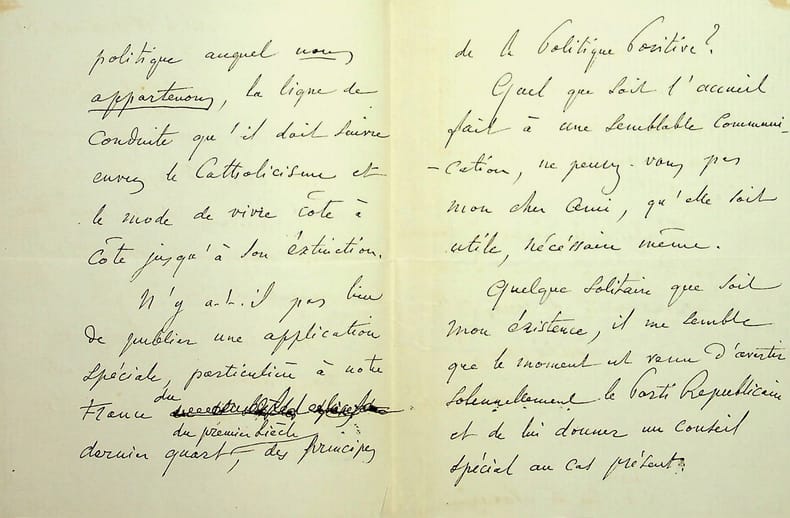 politique auquel nous
appartenons, la ligne de
conduite qu'il doit suivre
envers le Catholicisme et
le mode de vivre côte à
côte jusqu'à son éxtinction.
N'y a-t-il pas lieu
de publier une application
spéciale, particulière à notre
France du
du premier siècle
dernier quart, des principes
de la Politique Positive?
Quel que soit l'accueil
fait à une semblable communi-
-cation, ne pensez-vous pas
mon cher ami, qu'elle soit
utile, nécéssaire même.
Quelque solitaire que soit
mon éxistence, il me semble
que le moment est venu d'avertir
solennellement le Parti Republicain
et de lui donner un conseil
spécial au cas présent.